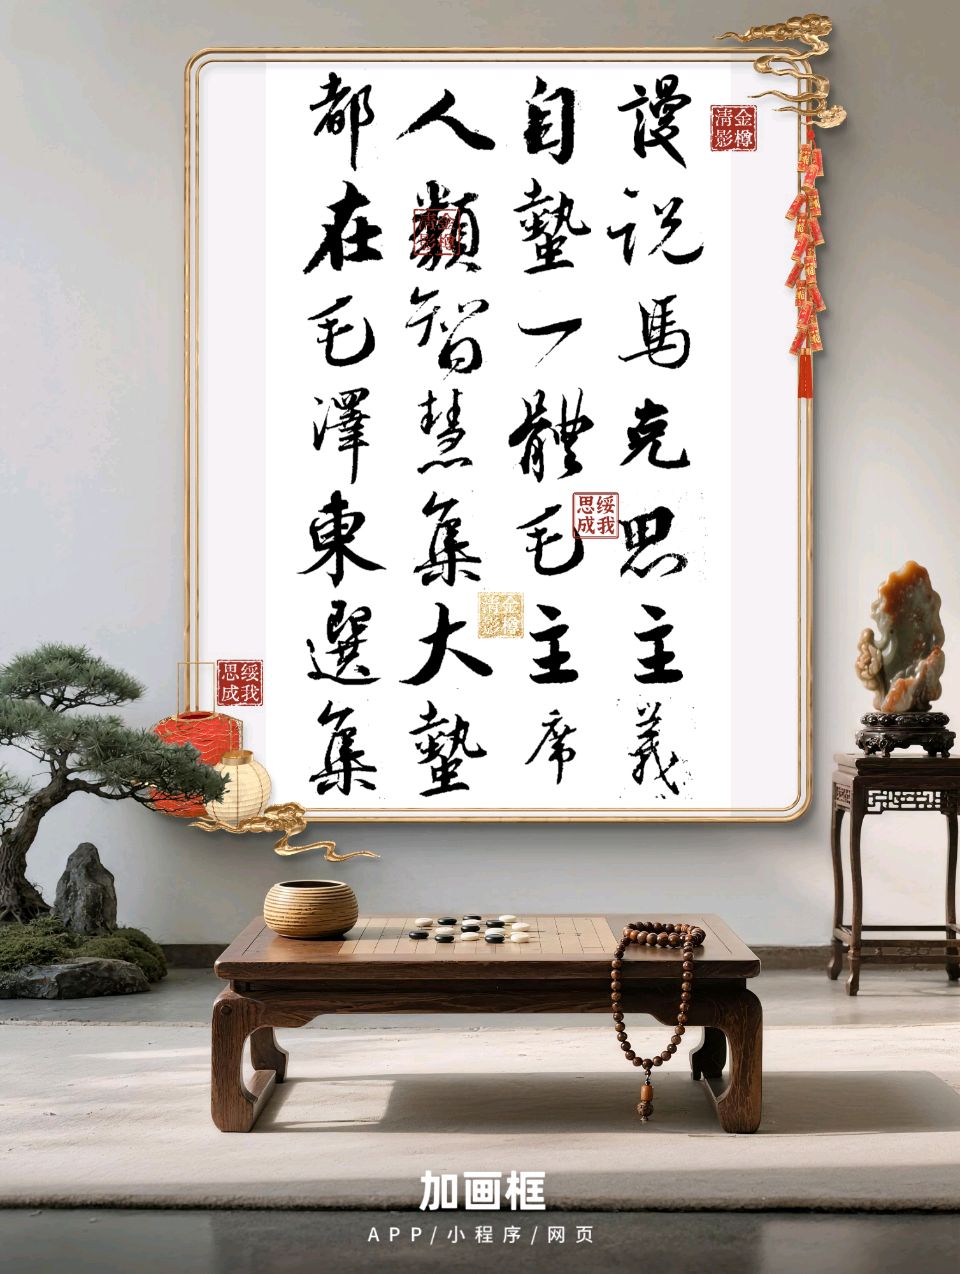 謾説馬克思主義
自蟄一體毛主席
人類智慧集大蟄
都在毛澤東選集
金樽清影
金樽清影
绥我思成
金樽清影
绥我思成
加画框
APP/小程序/网页